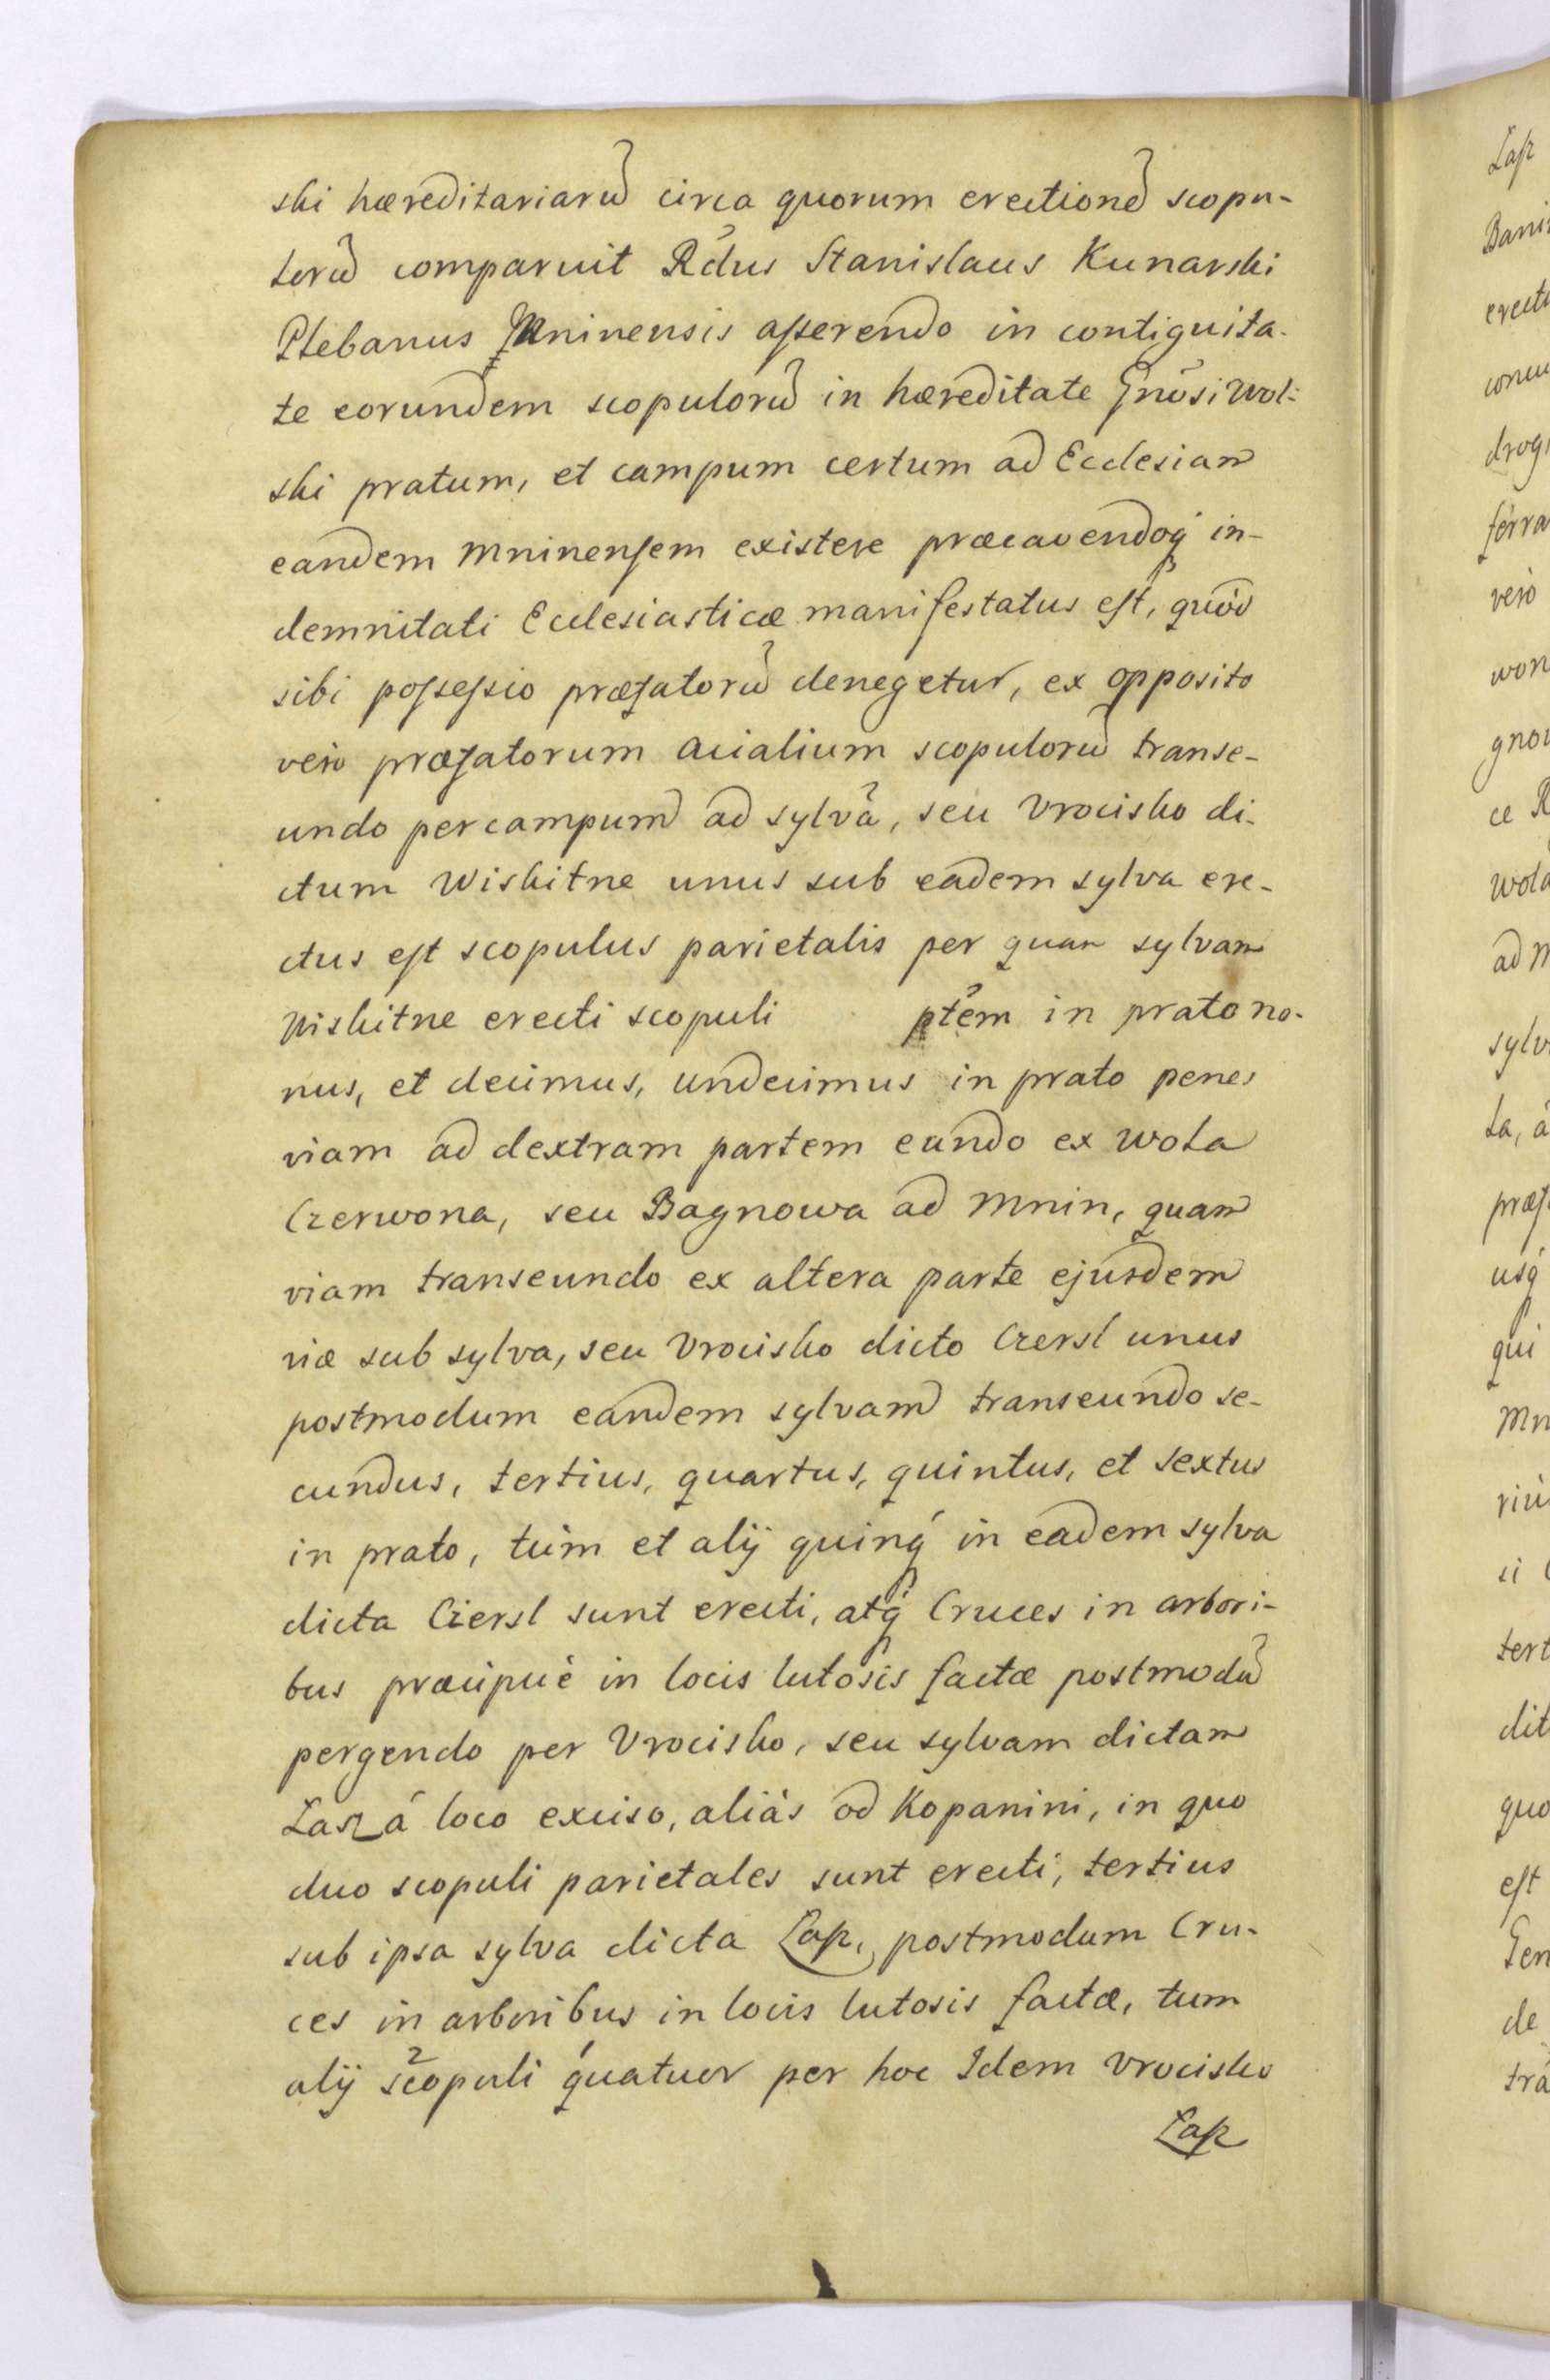 ski hæreditariarũ circa quorum erectionẽ scopu-
lorũ comparuit Rd̃us Stanislaus Kunarski
Plebanus Mninensis aſserendo in contiguita-
te eorundem scopulorũ in hæreditate Gn̄osi Wol-
ski pratum, et campum certum ad Ecclesiam
eandem Mninenſem existere præcavendoq́ in-
demnitati Ecclesiasticæ manifestatus eſt, quòd
sibi poſseſsio præfatorũ denegetur, ex opposito
verò præfatorum acialium scopulorũ transe-
undo per campum ad sylvã, seu Vrocisko di-
ctum Wiskitne unus sub eadem sylva ere-
ctus eſt scopulus parietalis per quam sylvam
Wiskitne erecti scopuli pt̃em in prato no-
nus, et decimus, undecimus in prato penes
viam ad dextram partem eundo ex Wola
Czerwona, seu Bagnowa ad Mnin, quam
viam transeundo ex altera parte ejusdem
viæ sub sylva, seu Vrocisko dicto Czersl unus
postmodum eandem sylvam transeundo se-
cundus, tertius, quartus, quintus, et sextus
in prato, tùm et alij quinq́ in eadem sylva
dicta Czersl sunt erecti, atq́ Cruces in arbori-
bus præcipuè in locis lutosis factæ postmodũ
pergendo per Vrocisko, seu sylvam dictam
Łasz á loco exciso, aliàs od Kopanini, in quo
duo scopuli parietales sunt erecti, tertius
sub ipsa sylva dicta Łaſz, postmodum Cru-
ces in arboribus in locis lutosis factæ, tum
alij scopuli quatuor per hoc Idem Vrocisko
Łaſz